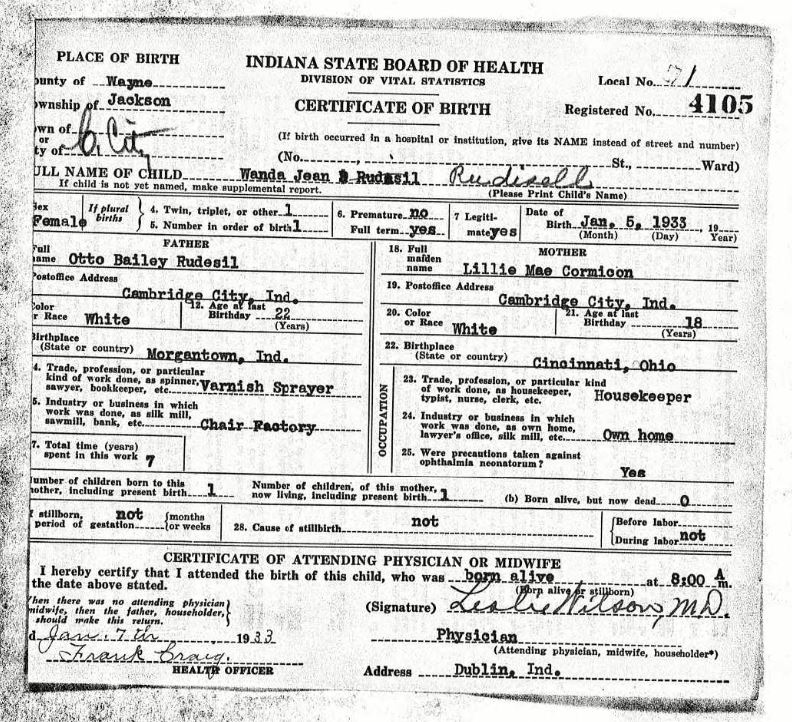 PLACE OF BIRTH
INDIANA STATE BOARD OF HEALTH
DIVISION OF VITAL STATISTICS
Local No. 71
ounty of Wayne
ownship of Jackson
CERTIFICATE OF BIRTH
Registered No. 4105
own of
or
ty of C. City
(If birth occurred in a hospital or institution, give its NAME instead of street and number)
(No. , St., Ward)
ULL NAME OF CHILD Wanda Jean Rudesil Rudisell
If child is not yet named, make supplemental report.
(Please Print Child's Name)
Sex
Female
If plural births
4. Twin, triplet, or other 1
5. Number in order of birth 1
6. Premature no
Full term yes
7 Legiti-
mate yes
Date of
Birth Jan. 5, 1933 19
(Month) (Day) Year)
FATHER
Full
name Otto Bailey Rudesil
Postoffice Address
Cambridge City, Ind.
Color
or Race White
12. Age at last
Birthday 22
(Years)
Birthplace
(State or country) Morgantown, Ind.
4. Trade, profession, or particular
kind of work done, as spinner,
sawyer, bookkeeper, etc. Varnish Sprayer
5. Industry or business in which
work was done, as silk mill,
sawmill, bank, etc. Chair Factory
7. Total time (years)
spent in this work 7
MOTHER
18. Full
maiden
name Lillie Mae Cormicon
19. Postoffice Address
Cambridge City, Ind.
20. Color
or Race White
21. Age at last
Birthday 18
(Years)
22. Birthplace
(State or country) Cincinnati, Ohio
OCCUPATION
23. Trade, profession, or particular kind
of work done, as housekeeper,
typist, nurse, clerk, etc. Housekeeper
24. Industry or business in which
work was done, as own home,
lawyer's office, silk mill, etc. Own home
25. Were precautions taken against
ophthalmia neonatorum? Yes
umber of children born to this
mother, including present birth 1
Number of children, of this mother,
now living, including present birth 1
(b) Born alive, but now dead 0
f stillborn, not
period of gestation
{months
{or weeks
28. Cause of stillbirth not
{Before labor
{During labor not
CERTIFICATE OF ATTENDING PHYSICIAN OR MIDWIFE
I hereby certify that I attended the birth of this child, who was born alive at 8:00 A m.
(Born alive or stillborn)
the date above stated.
When there was no attending physician
midwife, then the father, householder,
should make this return.
(Signature) Leslie Wilson, M.D.
d Jan. 7th, 1933
Physician
(Attending physician, midwife, householder*)
Frank Craig.
HEALTH OFFICER
Address Dublin, Ind.